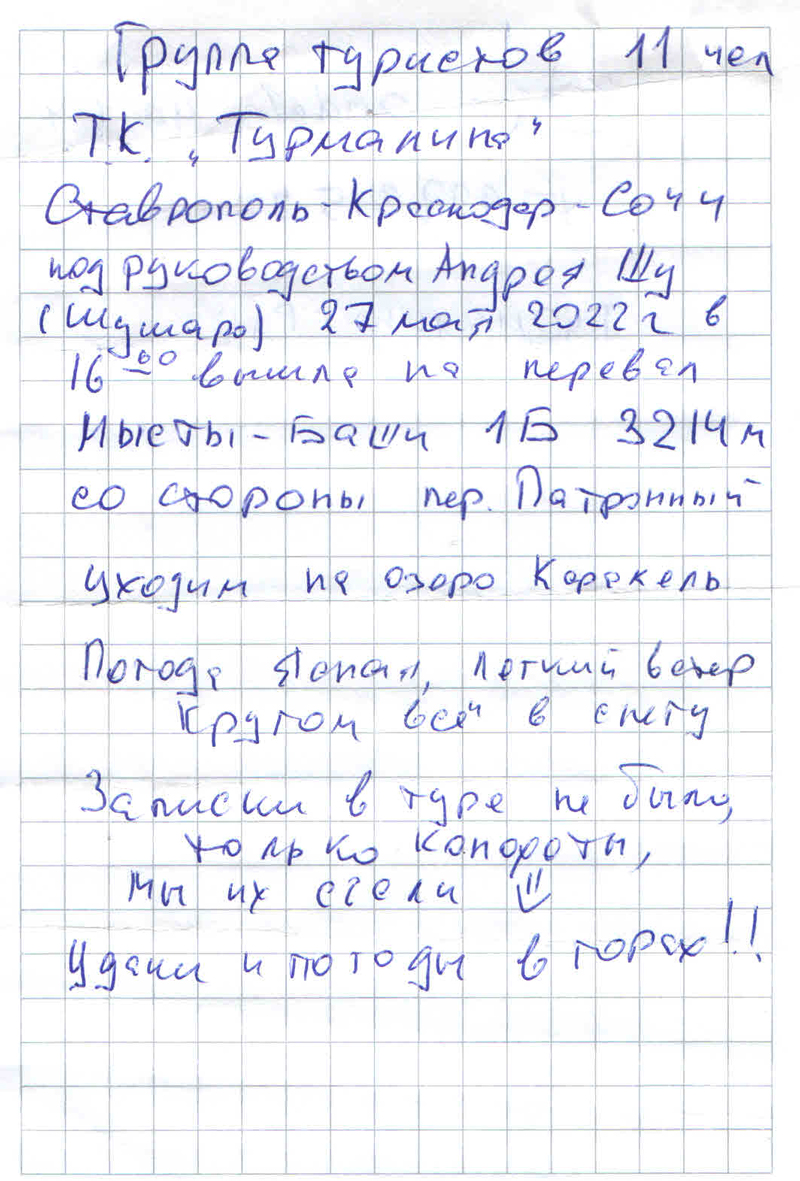 Группа туристов 11 чел
ТК. „Турманина"
Ставрополь-Краснодар-Сочи
под руководством Андрея Шу
(Шушара) 27 мая 2022 г в
16 00 вышла на перевал
Мысты-Баши 1Б 3214м
со стороны пер. Патронный
уходим на озеро Каракель
Погода ясная, легкий ветер
Кругом всё в снегу
Записки в туре не было,
только конфеты,
мы их съели
Удачи и погоды в горах!!